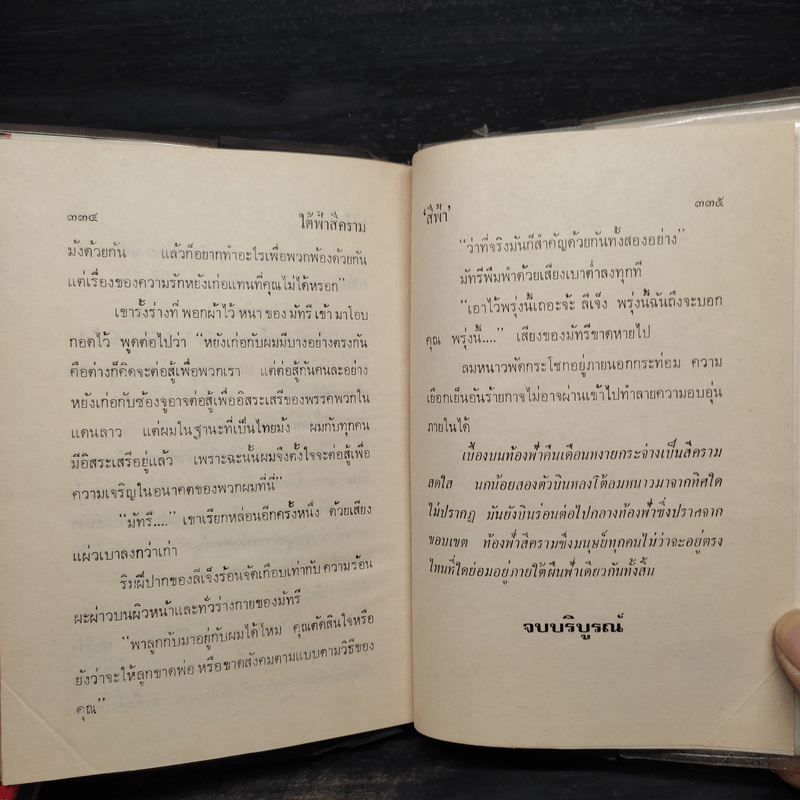 ๓๓๔ ใต้ฟ้าสีคราม
ม้งด้วยกัน แล้วก็อยากทำอะไรเพื่อพวกพ้องด้วยกัน
แต่เรื่องของความรักหยังเก่อแทนที่คุณไม่ได้หรอก”
เขารั้งร่างที่ พอกผ้าไว้ หนา ของ มัทรี เข้า มาโอบ
กอดไว้ พูดต่อไปว่า “หยังเก่อกับผมมีบางอย่างตรงกัน
คือต่างก็คิดจะต่อสู้เพื่อพวกเรา แต่ต่อสู้กันคนละอย่าง
หยังเก่อกับซ้องจูอาจต่อสู้เพื่ออิสระเสรีของพรรคพวกใน
แดนลาว แต่ผมในฐานะที่เป็นไทยม้ง ผมกับทุกคน
มีอิสระเสรีอยู่แล้ว เพราะฉะนั้นผมจึงตั้งใจจะต่อสู้เพื่อ
ความเจริญในอนาคตของพวกผมที่นี่”
“มัทรี....” เขาเรียกหล่อนอีกครั้งหนึ่ง ด้วยเสียง
แผ่วเบาลงกว่าเก่า
ริมฝีปากของลีเจ็งร้อนจัดเกือบเท่ากับ ความร้อน
ผะผ่าวบนผิวหน้าและทั่วร่างกายของมัทรี
“พาลูกกลับมาอยู่กับผมได้ไหม คุณตัดสินใจหรือ
ยังว่าจะให้ลูกขาดพ่อ หรือขาดสังคมตามแบบตามวิธีของ
คุณ”
‘สีฟ้า’ ๓๓๕
“ว่าที่จริงมันก็สำคัญด้วยกันทั้งสองอย่าง”
มัทรีพึมพำด้วยเสียงเบาต่ำลงทุกที
“เอาไว้พรุ่งนี้เถอะจ้ะ ลีเจ็ง พรุ่งนี้ฉันถึงจะบอก
คุณ พรุ่งนี้....” เสียงของมัทรีขาดหายไป
ลมหนาวพัดกระโชกอยู่ภายนอกกระท่อม ความ
เยือกเย็นอันร้ายกาจไม่อาจผ่านเข้าไปทำลายความอบอุ่น
ภายในได้
เบื้องบนท้องฟ้าคืนเดือนหงายกระจ่างเป็นสีคราม
สดใส นกน้อยสองตัวบินหลงโต้ลมหนาวมาจากทิศใด
ไม่ปรากฏ มันยังบินร่อนต่อไปกลางท้องฟ้าซึ่งปราศจาก
ขอบเขต ท้องฟ้าสีครามซึ่งมนุษย์ทุกคนไม่ว่าจะอยู่ตรง
ไหนที่ใดย่อมอยู่ภายใต้ผืนฟ้าเดียวกันทั้งสิ้น
จบบริบูรณ์